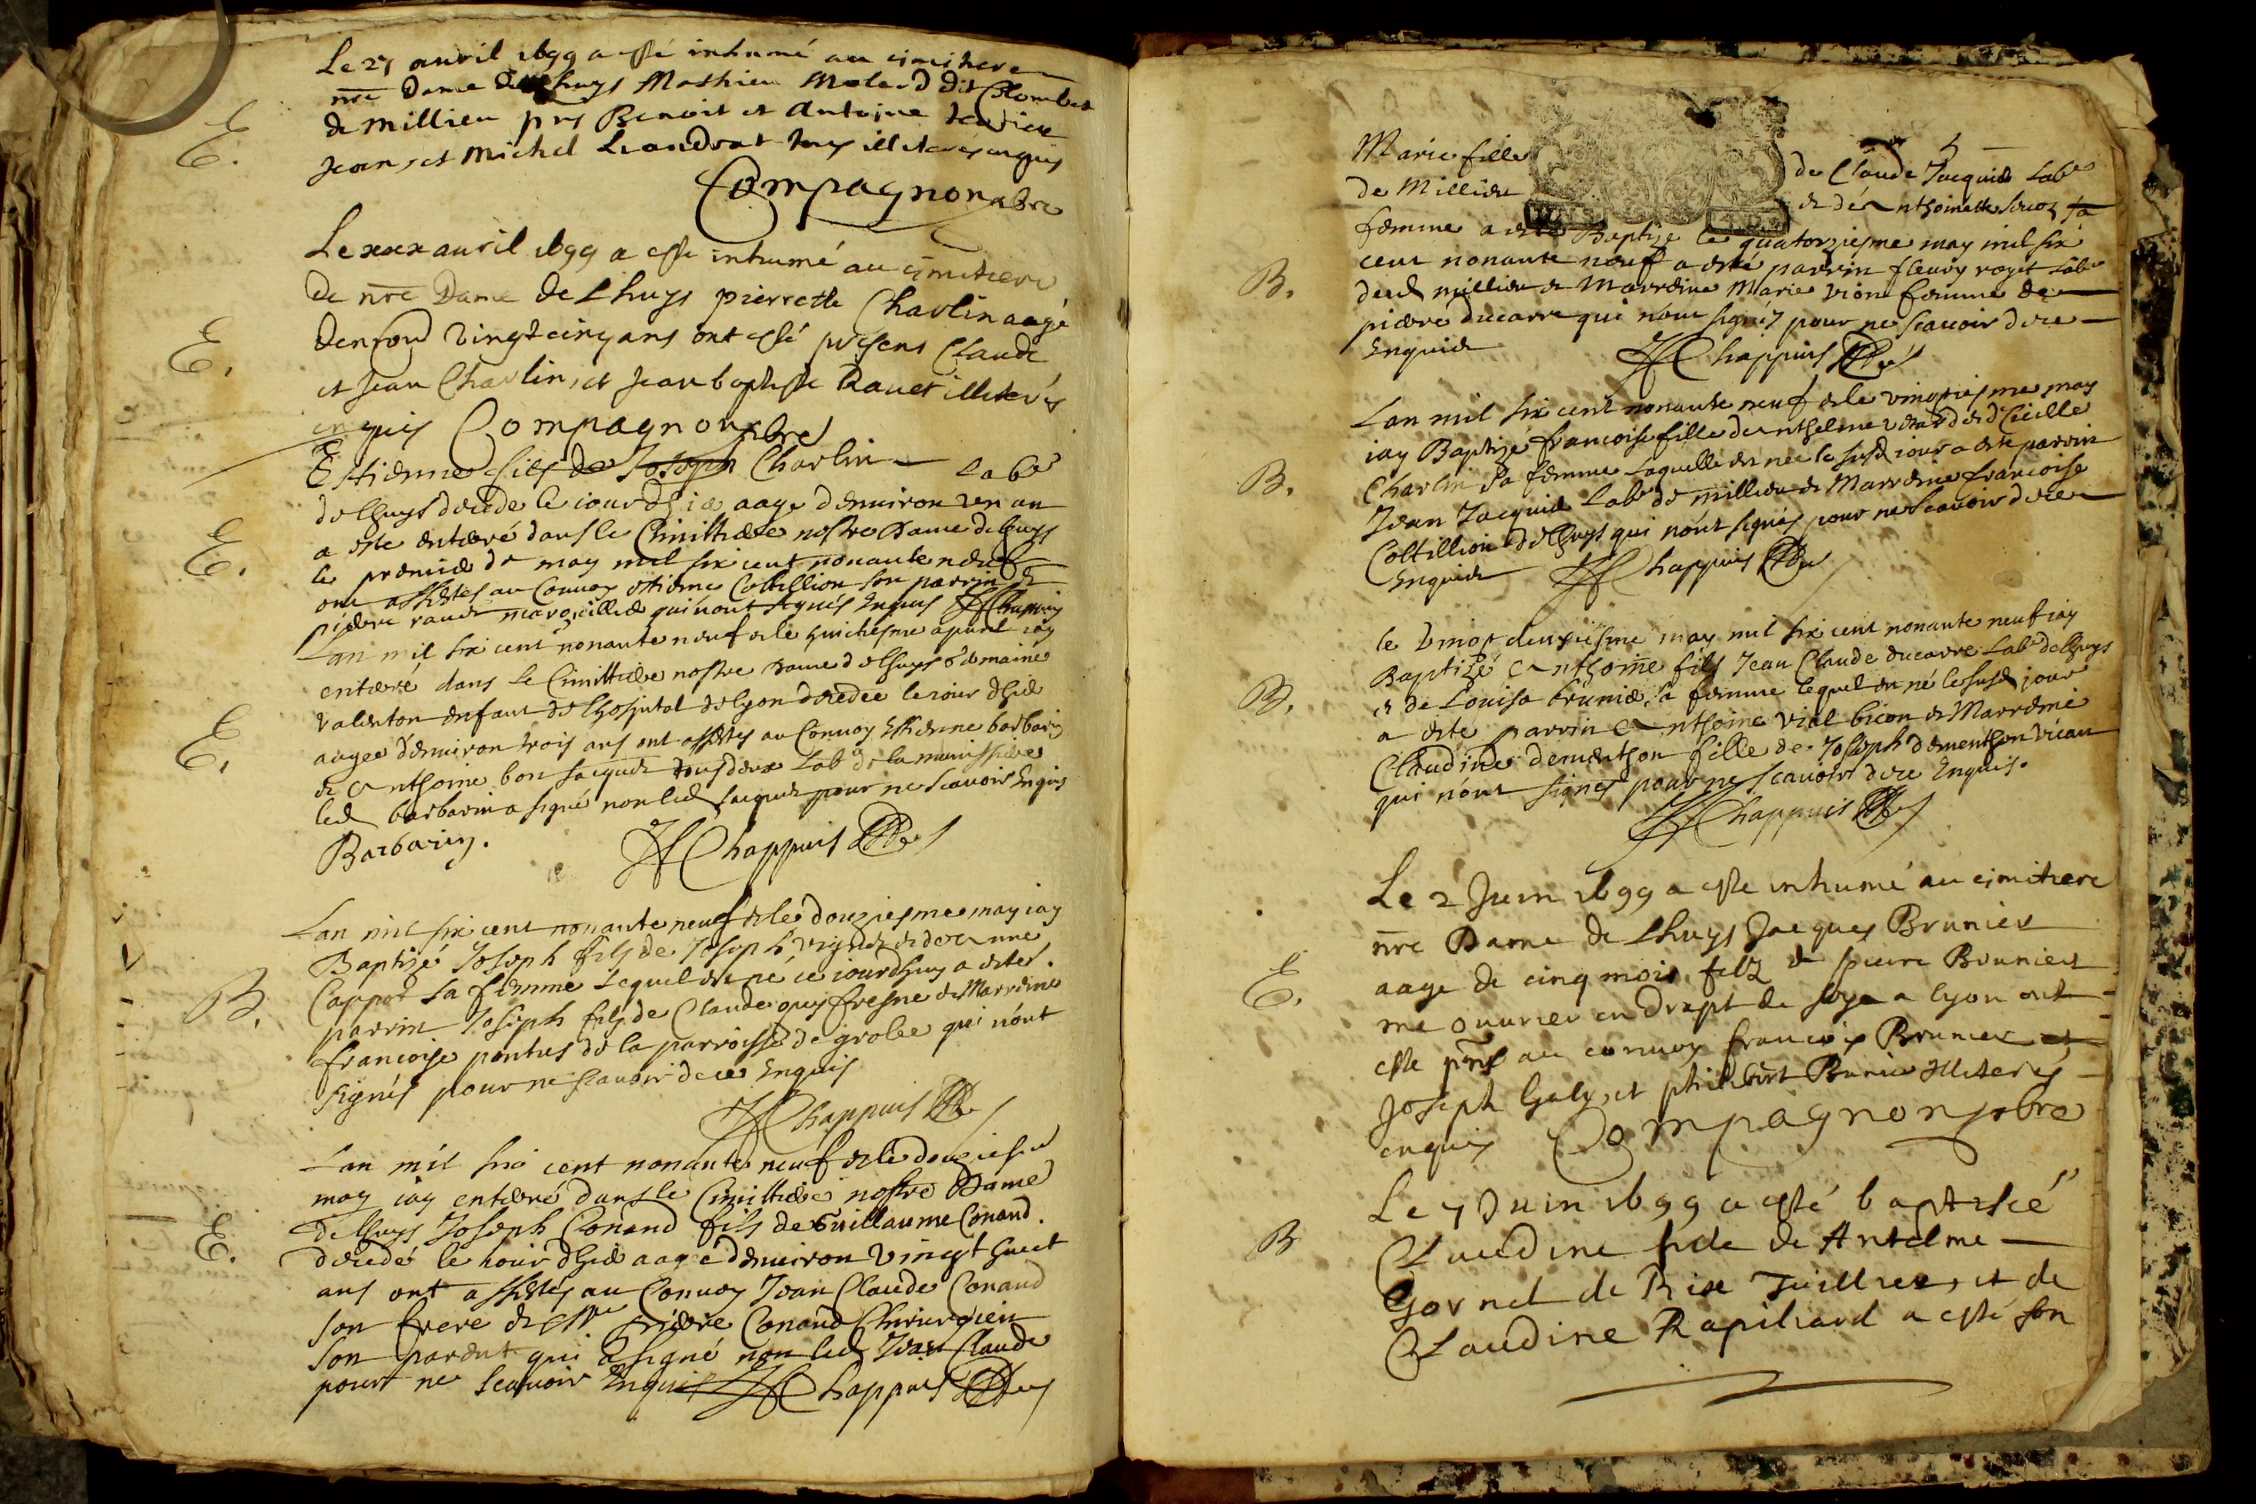 Le 27 auril 1699 a esté inhumé au cimitere
nre Dame de Lhuys Mathieu Molard dit Colombet
E.
de Millieu pns Benoit et Antoine
Jean, et Michel Leandrat tous illiterés enquis
Compagnon pbre
Le xxx auril 1699 a esté inhumé au cimitiere
de nre Dame de Lhuys pierrette Charlin aagé
E.
denuiron vingt cinq ans ont esté presens Claude
et Jean Charlin, et Jean baptiste Rauet illiterés
enquis Compagnon pbre
Estienne fils de Joseph Charlin labr
de lhuys decede le iour dhier aage denuiron un an
E.
a este enterré dans le Cimittiere nostre Dame de lhuys
le premier de may mil six cent nonante neuf
ont assistés au Conuoy estienne Coltillion son parrin et
pierre rauet marguillier qui nont signés Enquis JChappuis
Lan mil six cent nonante neuf et le huictiesme apuril iay
enterré dans le Cimittiere nostre Dame de lhuys
E.
Valenton enfant de lhospital de lyon decedee le iour dhier
aagee denuiron trois ans ont assistés au Conuoy Estienne barbarin
et Anthoine bon Jacquet tous deux labrs de la
led barbarin a signé non led Jacquet pour ne scauoir Enquis
Barbarin. JChappuis
Lan mil six cent nonante neuf et le douziesme may iay
Baptizé Joseph fils de Joseph et de Anne
B.
Cappot sa femme lequel est né ce iourdhuy a estes
parrin Joseph fils de Claude quey fresne et Marrdine
francoise pontus de la parroisse de grolee qui nont
signés pour ne scauoir de ce Enquis
JChappuis
Lan mil six cent nonante neuf et le douziesme
may iay enterré dans le Cimittiere nostre Dame
de lhuys Joseph Conand fils de Guillaume Conand
E.
decedé le iour dhier aagé denuiron vingt huict
ans ont assistés au Conuoy Jean Claude Conand
son frere et Mre pierre Conand Chirurgien
son parent qui a signé non led Jean Claude
pour ne scauoir Enquis JChappuis
Marie fille de Claude Jacquier labr
de Millieu et de Anthoinette sa
femme a este Baptize le quatorziesme may mil six
cent nonante neuf a esté parrin fleury roget labr
B.
dud millieu et Marrdine Marie vion femme de
pierre ducarre qui nont signés pour ne scauoir de ce
Enquis JChappuis
Lan mil six cent nonante neuf et le vingtiesme may
iay Baptizé francoise fille de Anthelme et de Cecille
B.
Charlin sa femme laquelle est nee le susd iour a este parrin
Jean Jacquier labr de millieu et Marrdine francoise
Coltillion de lhuys qui nont signés pour ne scauoir de ce
Enquis JChappuis
le vingt deuxiesme may mil six cent nonante neuf iay
Baptizé Anthoine fils Jean Claude ducarre labr de lhuys
B.
et de Louise brunier sa femme lequel est né le susd jour
a esté parrin Anthoine vial bicon et Marrdine
Claudine dementhon fille de Joseph dementhon
qui nont signés pour ne scauoir de ce Enquis.
JChappuis
Le 2 Juin 1699 a este inhumé au cimitiere
nre Dame de Lhuys Jacques Brunier
E.
aage de cinq mois filz de pierre Brunier
me ouurier en drapt de soye a lyon ont
este pns au conuoy francois Brunier et
Joseph Galy, et philibert Brunier illiterés
enquis Compagnon pbre
Le 7 Juin 1699 a esté baptisée
B
Claudine fille de Antelme
Gornet de Rix Tuillier, et de
Claudine Rapillard a esté son